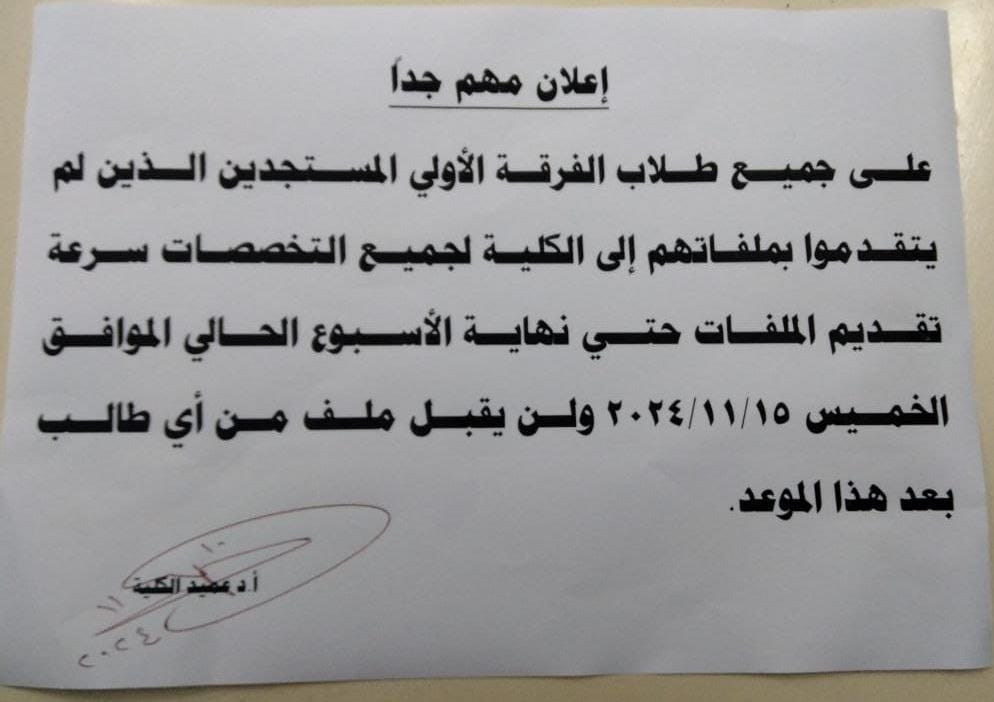 إعلان مهم جداً
على جميع طلاب الفرقة الأولي المستجدين الذين لم
يتقدموا بملفاتهم إلى الكلية لجميع التخصصات سرعة
تقديم الملفات حتي نهاية الأسبوع الحالي الموافق
الخميس ٢٠٢٤/١١/١٥ ولن يقبل ملف من أي طالب
بعد هذا الموعد.
أ.د عميد الكلية
١٠
١١
٢٠٢٤